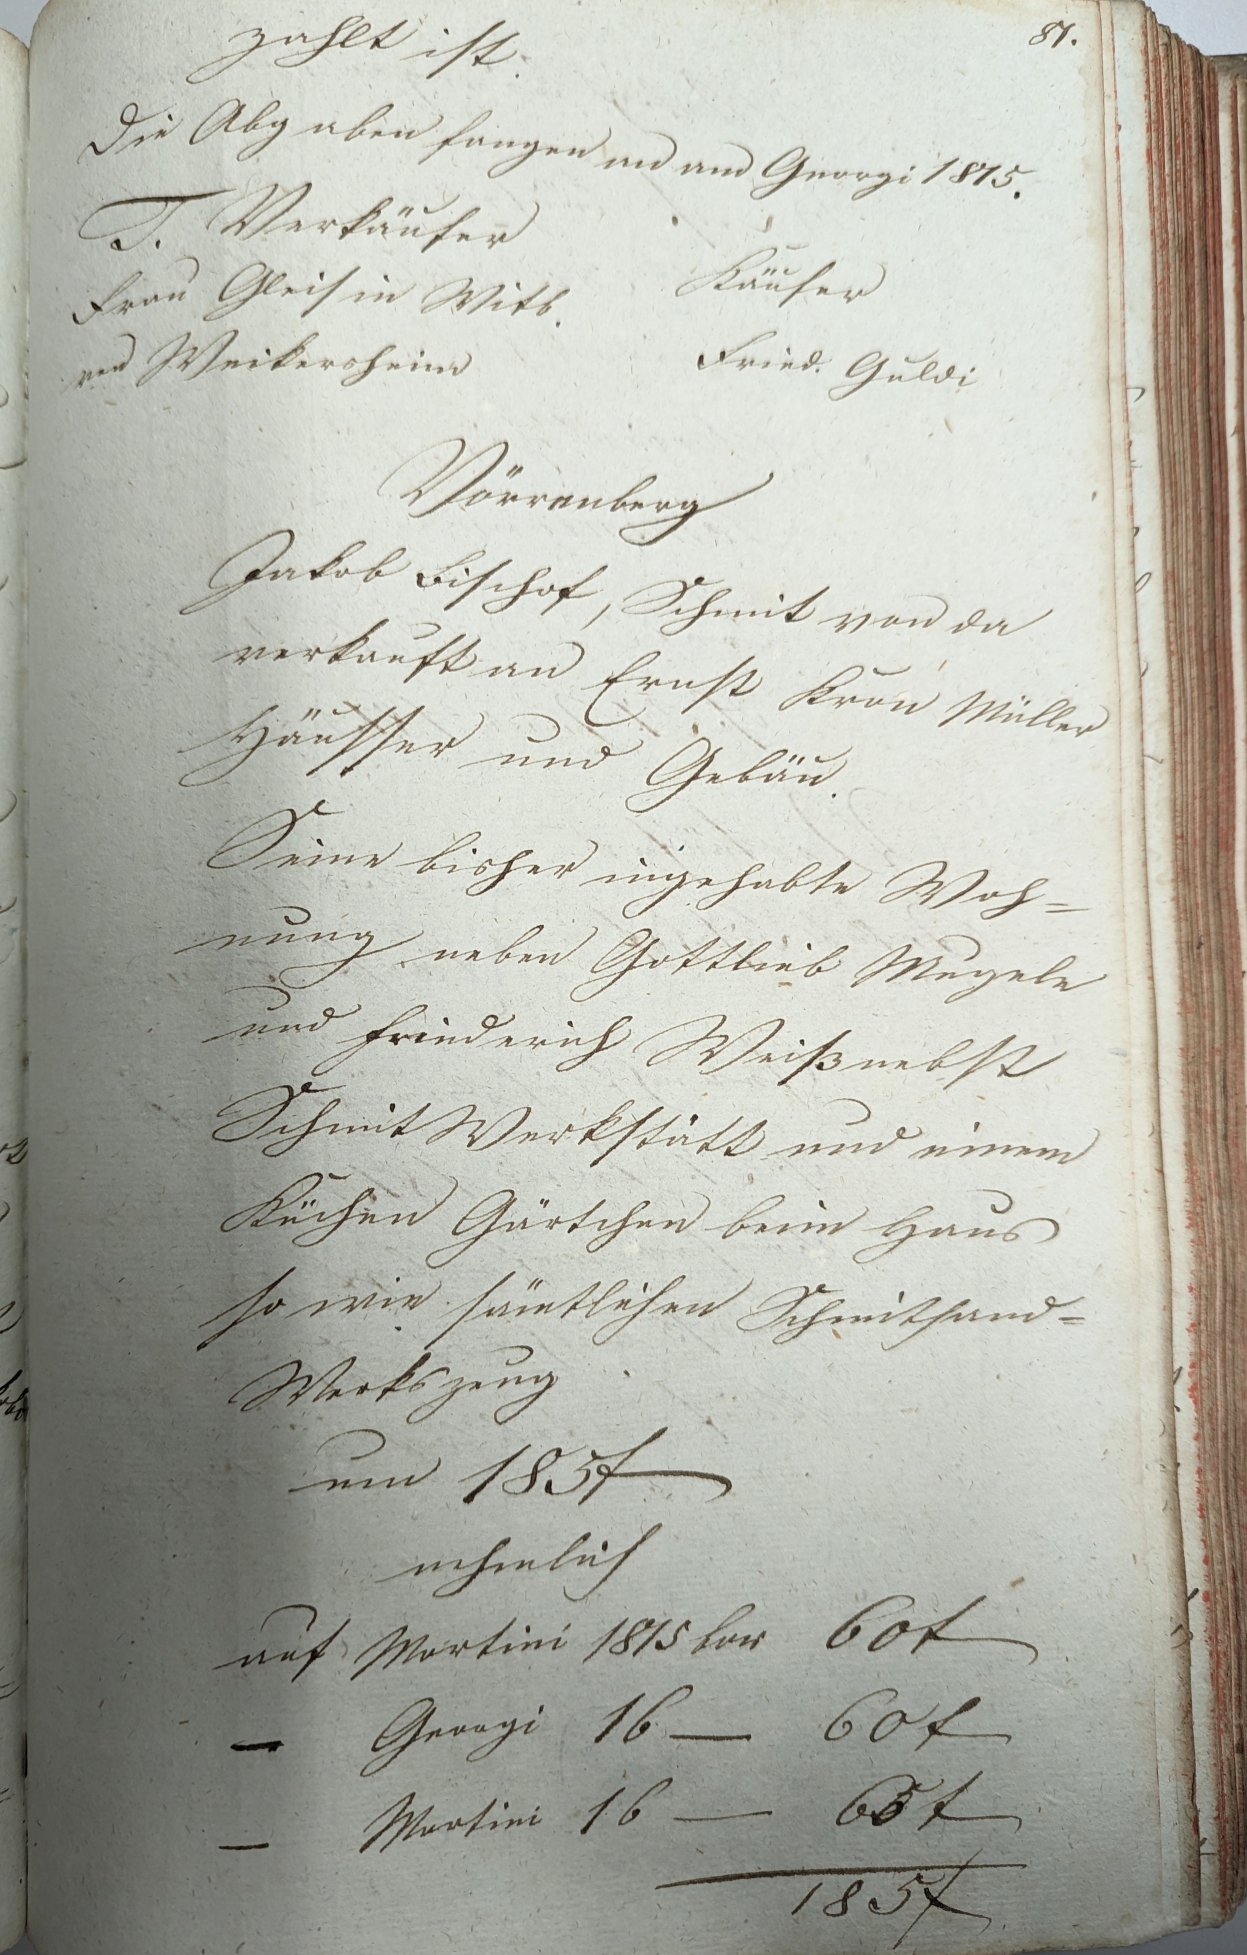 81.
zahlt ist.
Die Abgaben fangen an am Georgi 1815.
T. Verkäufer
Käufer
Frau Gleis in Witb.
von Weikersheim
Fried. Guldi
Vörrenberg
Jakob Bischof, Schmit von da
verkauft an Ernst Kron Müller
Häusser und Gebäu.
Seine bisher ingehabte Woh=
nung neben Gottlieb Megele
und Friederich Weiß nebst
Schmit Werkstätt und einem
Küchen Gärtchen beim Haus
so wie sämtlichen Schmithand=
Werkszeug
um 185 f
nehmlich
auf Martini 1815 bar 60 f
— Georgi 16 — 60 f
— Martini 16 — 65 f
185 f